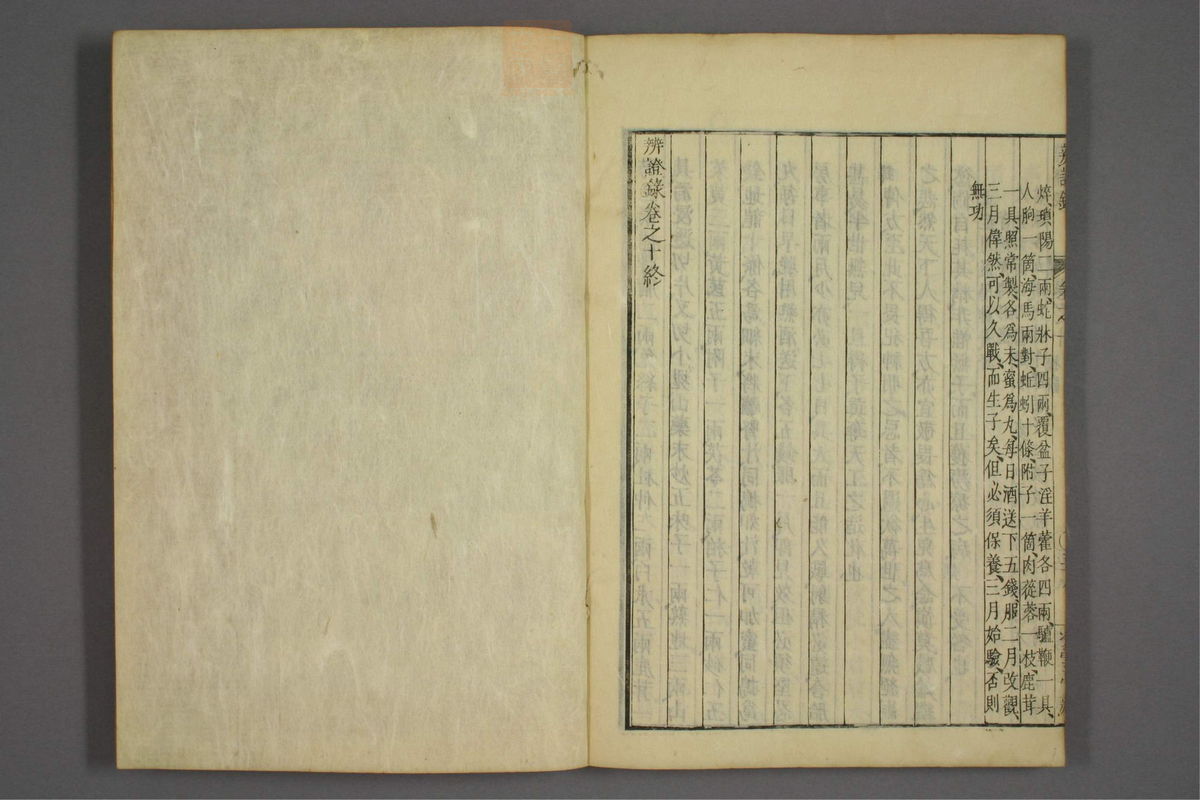 辨證錄
焠瑣陽二兩、蛇牀子四兩、覆盆子淫羊藿各四兩、驢鞭一具、
人胞一箇、海馬兩對、蚯蚓十條、附子一箇、肉蓯蓉一枝、鹿茸
一具、照常製、各爲末、蜜爲丸、每日酒送下五錢、服二月改觀、
三月偉然、可以久戰、而生子矣、但必須保養、三月始驗、否則
無功
辨證錄卷之十終